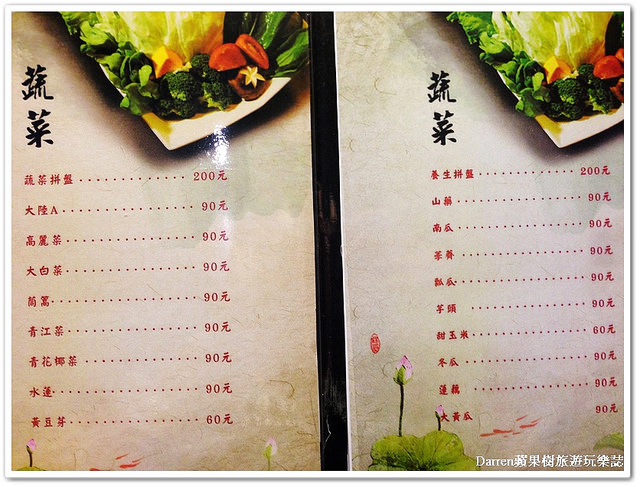 蔬菜
蔬菜拼盤 200元
大陸A 90元
高麗菜 90元
大白菜 90元
茼蒿 90元
青江菜 90元
青花椰菜 90元
水蓮 90元
黃豆芽 60元
蔬菜
養生拼盤 200元
山藥 90元
南瓜 90元
茶脊 90元
瓠瓜 90元
芋頭 90元
甜玉米 60元
冬瓜 90元
蓮藕 90元
大黃瓜 90元
Darren蘋果樹旅遊玩樂誌